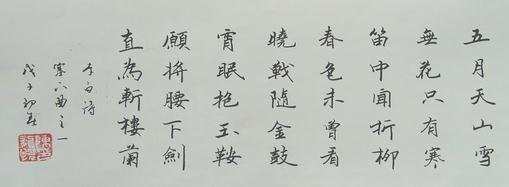 五月天山雪
無花只有寒
笛中聞折柳
春色未曾看
曉戰隨金鼓
宵眠抱玉鞍
願將腰下劍
直為斬樓蘭
李白詩
塞下曲之一
戊子初春